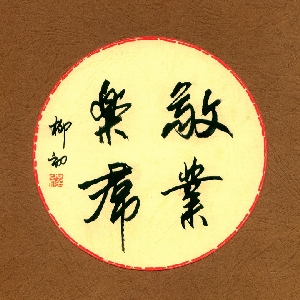 敬業
樂羣
柳初